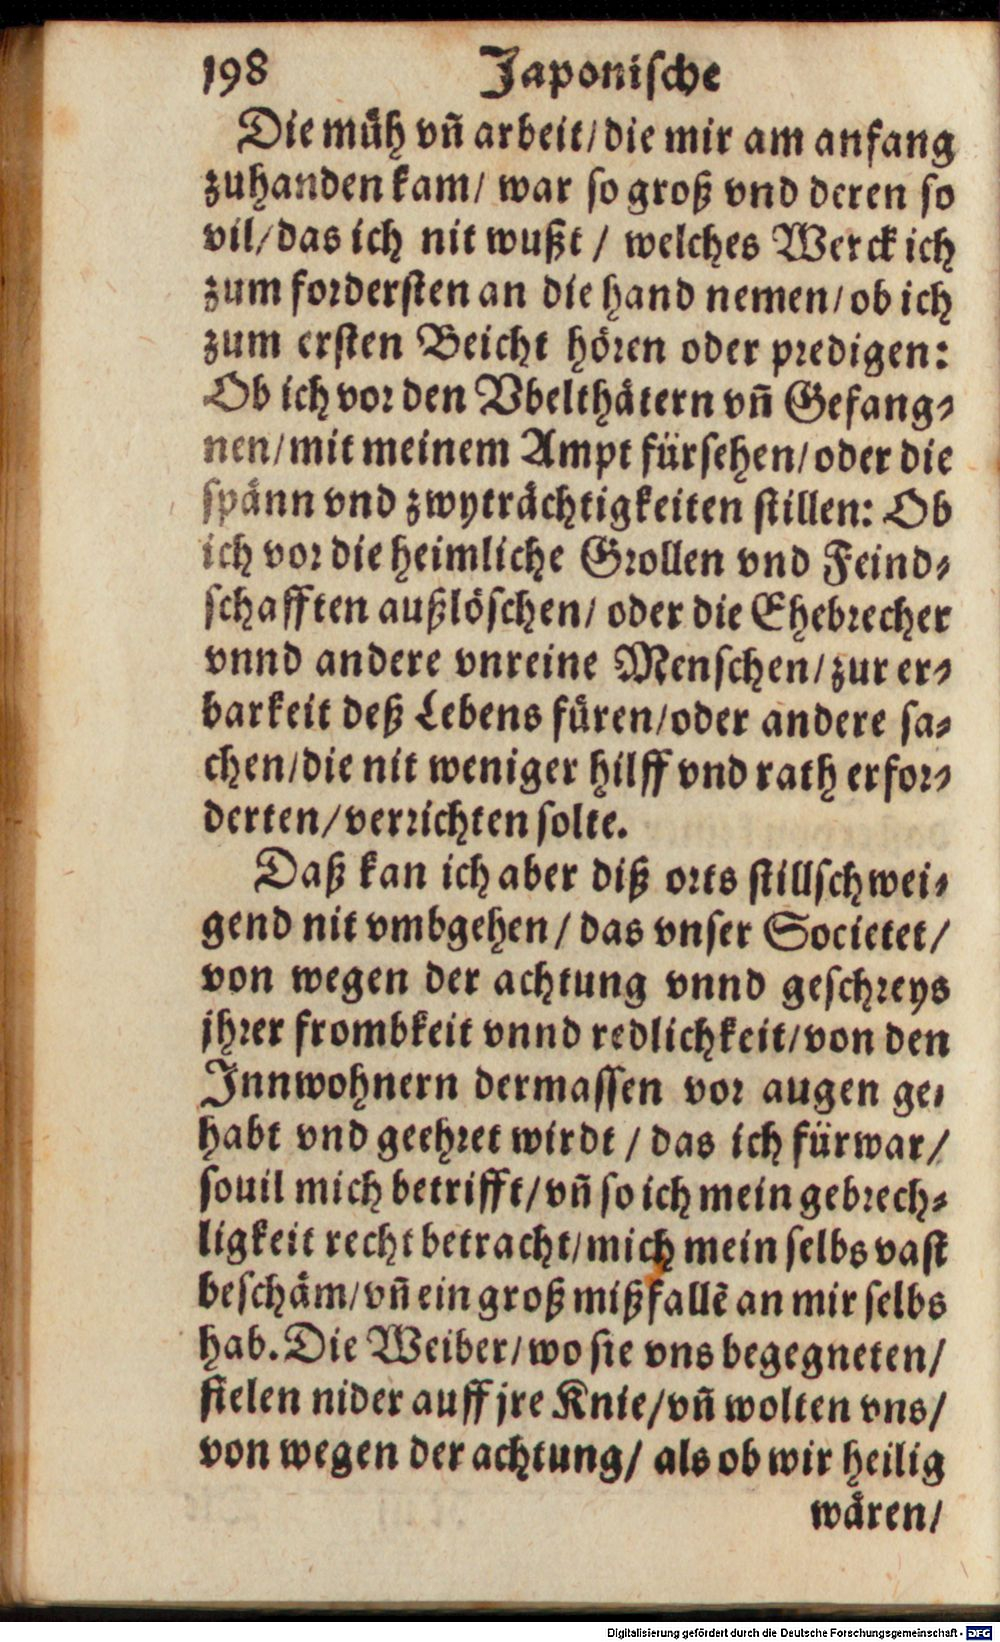 198 Japonische
Die müh vñ arbeit/ die mir am anfang
zuhanden kam/ war so groß vnd deren so
vil/ das ich nit wußt / welches Werck ich
zum fordersten an die hand nemen/ ob ich
zum ersten Beicht hören oder predigen:
Ob ich vor den Vbelthätern vñ Gefang-
nen/ mit meinem Ampt fürsehen/ oder die
spänn vnd zwyträchtigkeiten stillen: Ob
ich vor die heimliche Grollen vnd Feind-
schafften außlöschen/ oder die Ehebrecher
vnnd andere vnreine Menschen/ zur er-
barkeit deß Lebens füren/ oder andere sa-
chen/ die nit weniger hilff vnd rath erfor-
derten/ verrichten solte.
Daß kan ich aber diß orts stillschwei-
gend nit vmbgehen/ das vnser Societet/
von wegen der achtung vnnd geschreys
jhrer frombkeit vnnd redlichkeit/ von den
Innwohnern dermassen vor augen ge-
habt vnd geehret wirdt / das ich fürwar/
souil mich betrifft/ vñ so ich mein gebrech-
ligkeit recht betracht/ mich mein selbs vast
beschäm/ vñ ein groß mißfallẽ an mir selbs
hab. Die Weiber/ wo sie vns begegneten/
fielen nider auff jre Knie/ vñ wolten vns/
von wegen der achtung/ als ob wir heilig
wären/
Digitalisierung gefördert durch die Deutsche Forschungsgemeinschaft - DFG